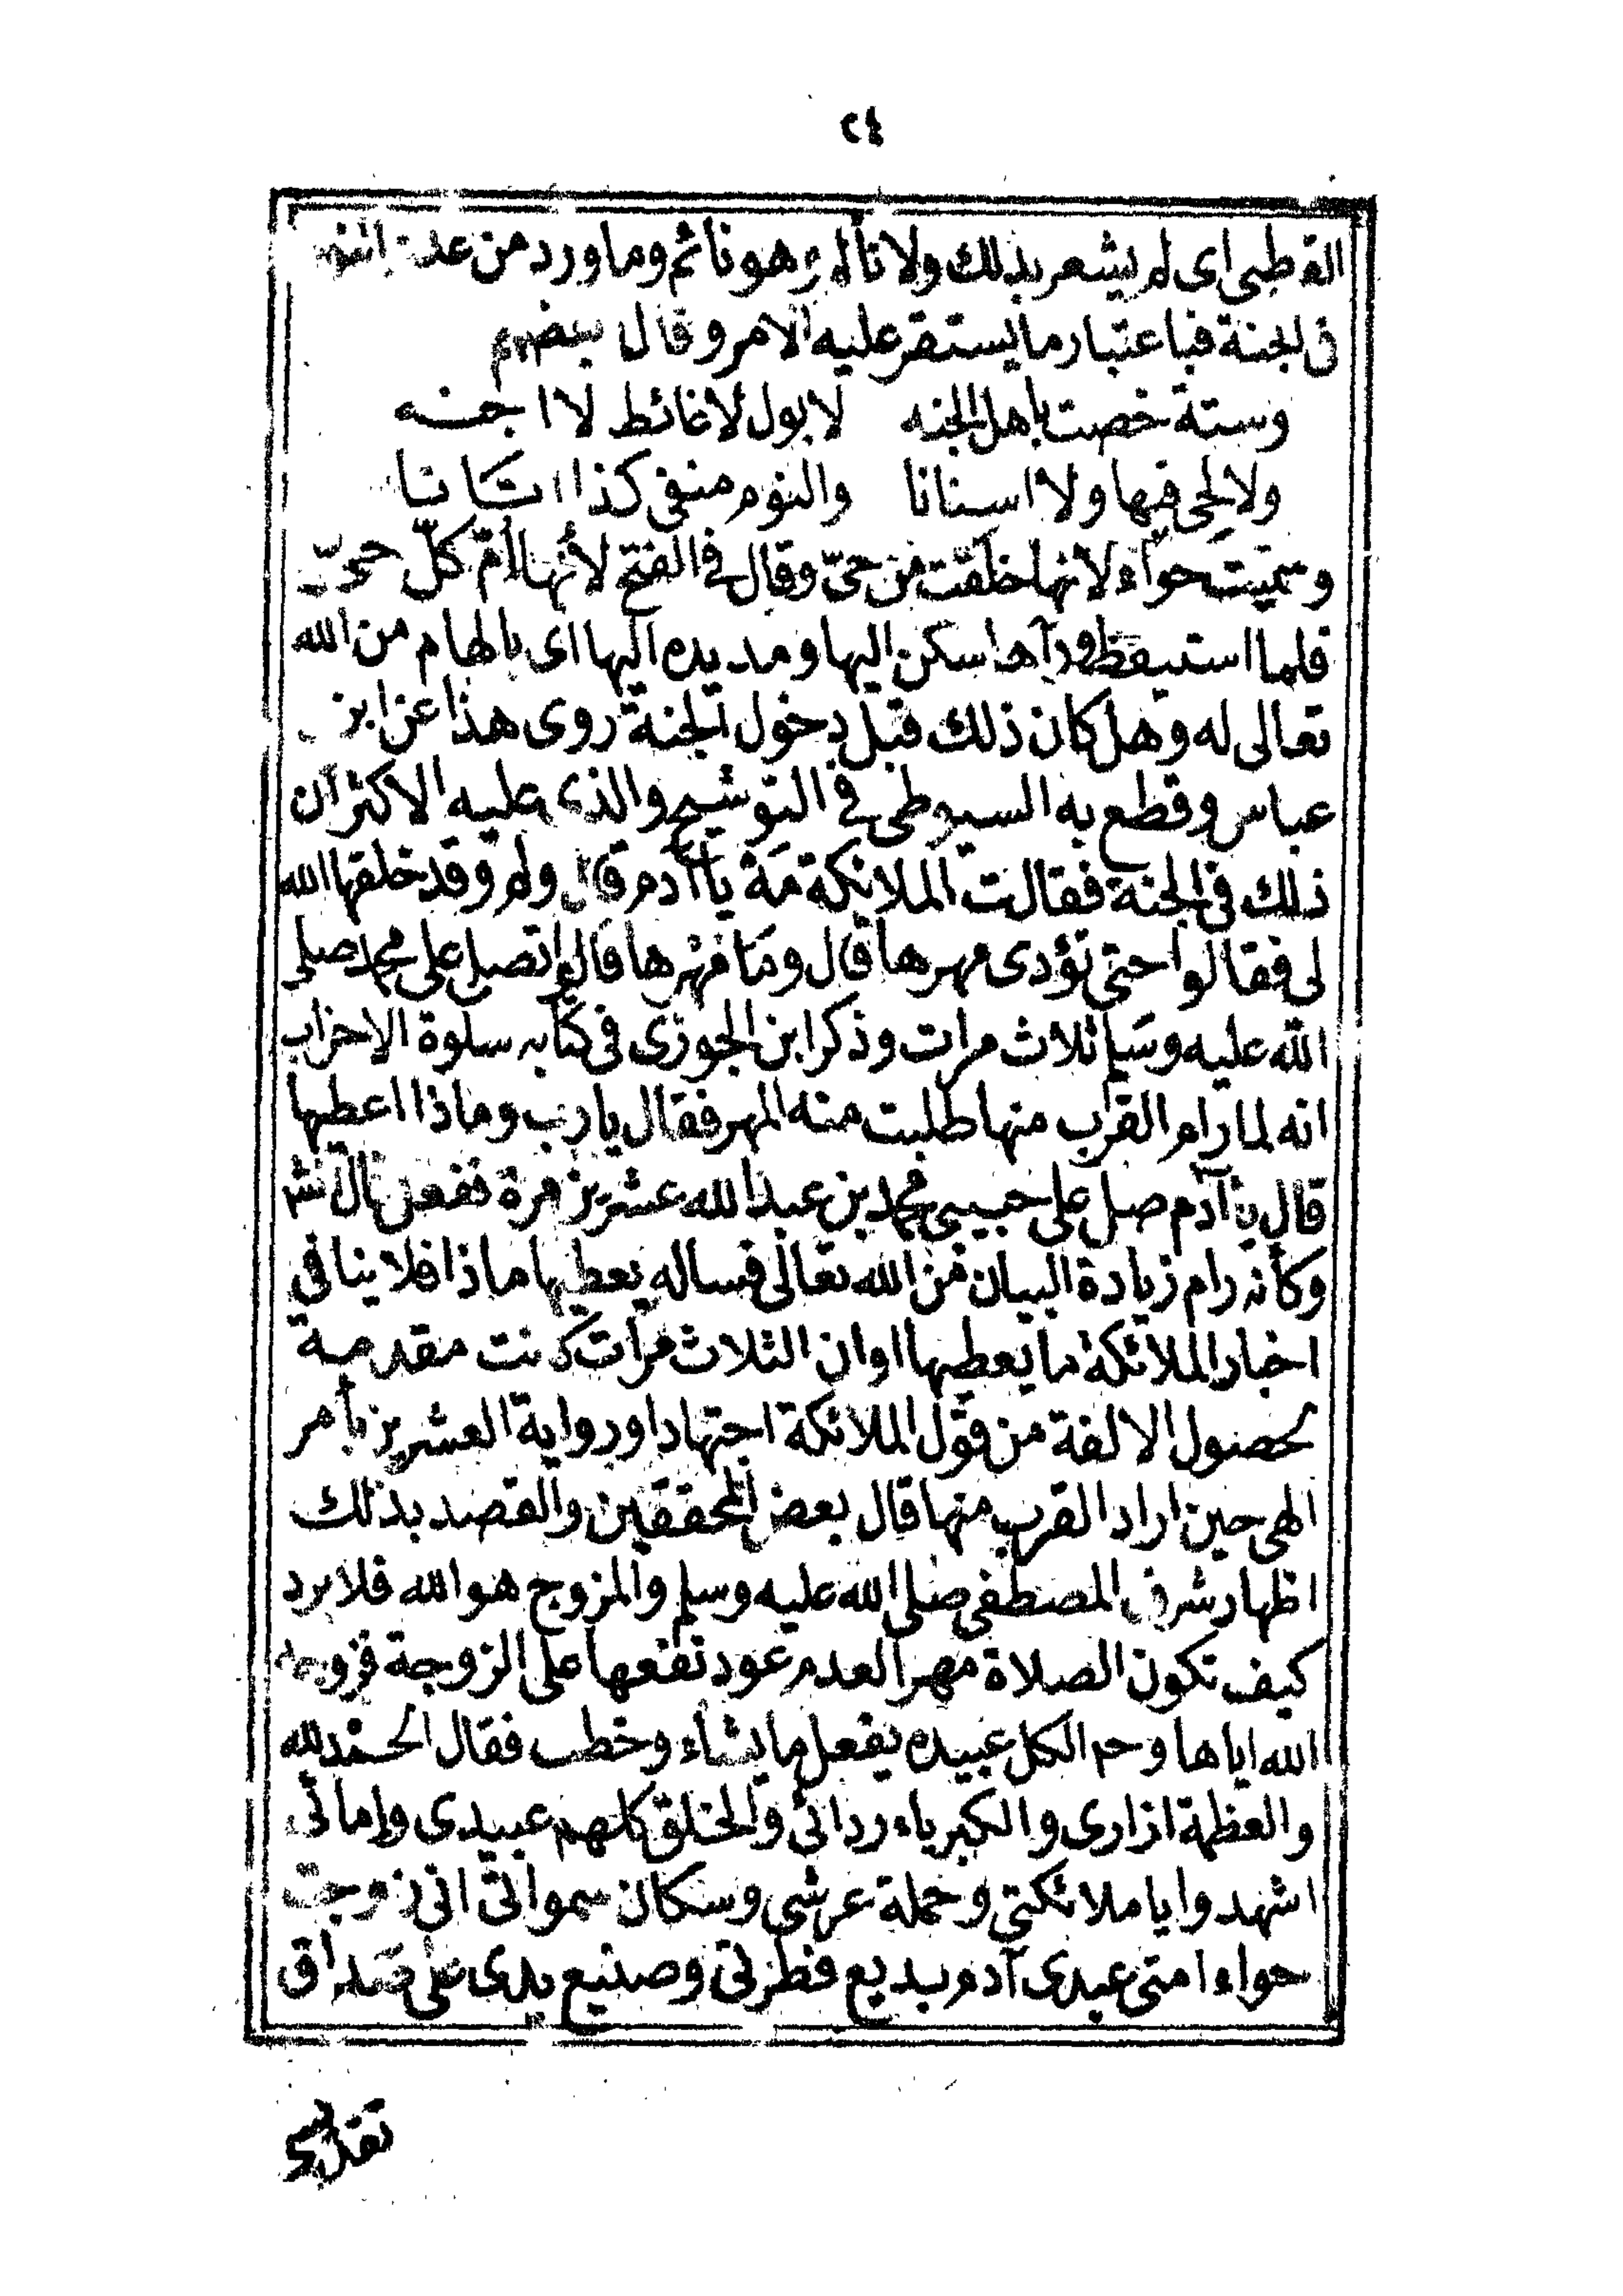 ٢٤
القرطبى اى لم يشعر بذلك ولا تألم وهو نائم وما ورد من عدم النوم
فى الجنة فباعتبار ما يستقر عليه الامر وقال بعضهم
وستة خصت باهل الجنه لا بول لا غائط لا اجنه
ولا لحى فيها ولا اسنانا والنوم منفى كذا
وسميت حواء لانها خلقت من حىّ وقال فى الفتح لأنها أمّ كلّ حىّ
فلما استيقظ ورآها سكن اليها ومد يده اليها اى بالهام من الله
تعالى له وهل كان ذلك قبل دخول الجنة روى هذا عن ابن
عباس وقطع به السيوطى فى التوشيح والذى عليه الاكثر ان
ذلك فى الجنة فقالت الملائكة مَهْ يا آدم قال ولم وقد خلقها الله
لى فقالوا حتى تؤدى مهرها قال وَمَا مَهْرها قالوا تصلى على محمد صلى
الله عليه وسَلم ثلاث مرات وذكر ابن الجوزى فى كتابه سلوة الاحزان
انه لما رام القرب منها طلبت منه المهر فقال يا رب وماذا اعطيها
قال يا آدم صل على حبيبى محمد بن عبد الله عشرين مرة ففعل قال
وكأنه رام زيادة البيان من الله تعالى فساله يعطيها ماذا فلا ينافى
اخبار الملائكة ما يعطيها او ان الثلاث مرات كانت مقدمة
لحصول الالفة من قول الملائكة اجتهادا ورواية العشرين بأمر
الهى حين اراد القرب منها قال بعض المحققين والقصد بذلك
اظهار شرف المصطفى صلى الله عليه وسلم والمزوج هو الله فلا يرد
كيف تكون الصلاة مهرا لعدم عود نفعها على الزوجة فزوجه
الله اياها وحم الكل عبيده يفعل ما يشاء وخطب فقال الحمد لله
والعظمة ازارى والكبرياء ردائى والخلق كلهم عبيدى وإمائى
اشهدوا يا ملائكتى وحملة عرشى وسكان سمواتى انى زوجت
حواء امتى عبدى آدم ببديع فطرتى وصنيع يدى على صَداق
تقديسى